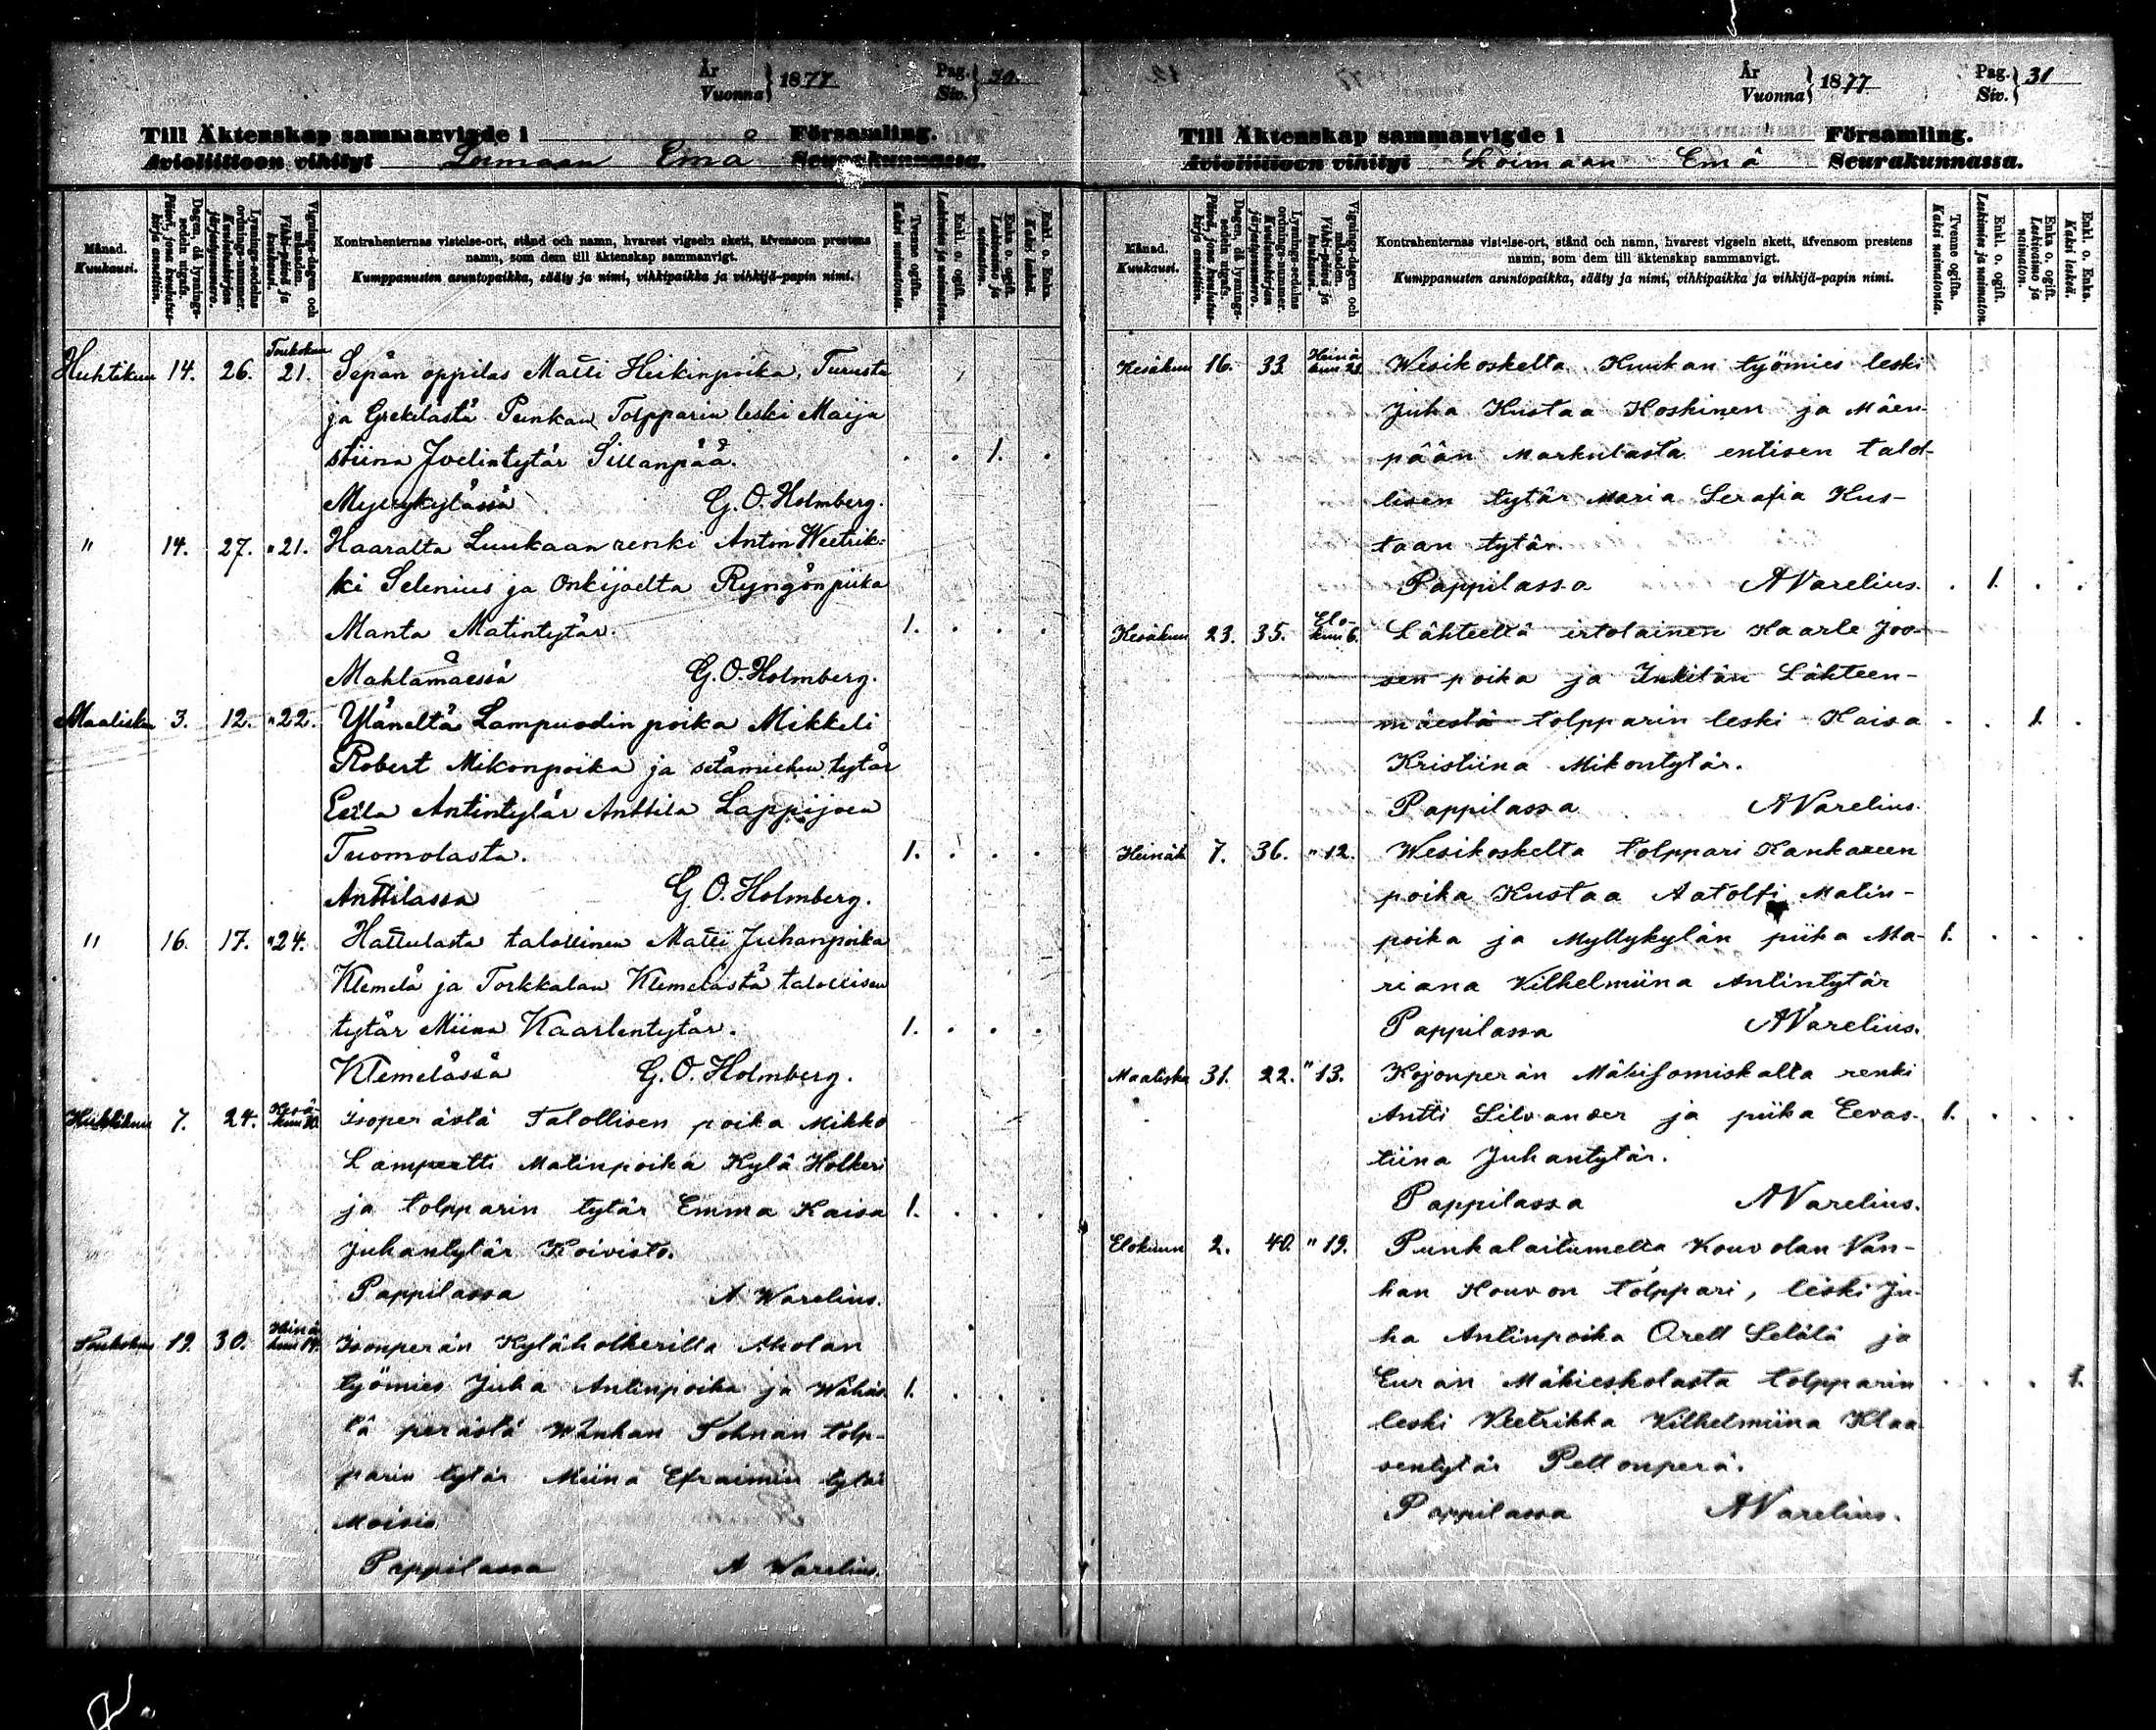 År
Vuonna } 1877
Pag.
Siv. } 30.
Till Äktenskap sammanvigde i Församling.
Avioliittoon vihityt Loimaan Emä Seurakunnassa.
Månad.
Kuukausi.
Dagen, då lysnings-sedeln utgafs.
Päivä, jona kuulutus-kirja annettiin.
Lysnings-sedelns ordnings-nummer.
Kuulutuskirjan järjestysnumero.
Vignings-dagen och månaden.
Vihki-päivä ja kuukausi.
Kontrahenternas vistelse-ort, stånd och namn, hvarest vigseln skett, äfvensom prestens
namn, som dem till äktenskap sammanvigt.
Kumppanusten asuntopaikka, sääty ja nimi, vihkipaikka ja vihkijä-papin nimi.
Tvenne ogifta.
Kaksi naimatonta.
Enkl. o. ogift.
Leskimies ja naimaton.
Enka o. ogift.
Leskivaimo ja naimaton.
Enkl. o. Enka.
Kaksi leskeä.
Huhtikuu 14. 26. Toukokuu 21. Sepän oppilas Matti Heikinpoika, Turusta
ja Grekilästä Punkan Torpparin leski Maija
stiina Joelintytär Sillanpää. . . 1. .
Myllykylässä G. O. Holmberg.
" 14. 27. "21. Haaralta Luukaan renki Anton Weetrik-
ki Selenius ja Onkijoelta Ryngön piika
Manta Matintytär. 1. . . .
Mahlamäessä G. O. Holmberg.
Maalisku 3. 12. "22. Yläneltä Lampuodin poika Mikkeli
Robert Mikonpoika ja sotamiehen tytär
Eeva Antintytär Anttila Lappijoen
Tuomolasta. 1. . . .
Anttilassa G. O. Holmberg.
" 16. 17. "24. Hattulasta talollinen Matti Juhanpoika
Klemelä ja Torkkalan Klemelästä talollisen
tytär Miina Kaarlentytär. 1. . . .
Klemelässä G. O. Holmberg.
Huhtikuu 7. 24. Kesäkuu 30. Isoperästä Talollisen poika Mikko
Lampertti Matinpoika Kylä Holkeri
ja tolpparin tytär Emma Kaisa 1. . . .
Juhantytär Koivisto.
Pappilassa A Warelius.
Toukokuu 19. 30. Heinäkuu 14. Isonperän Kyläholkerilta Aholan
työmies Juha Antinpoika ja Wähäs 1. . . .
tä perästä Wanhan Sohnan tolp-
parin tytär Miina Efraimin tytär
Moisio
Pappilassa A Warelius.
År
Vuonna } 1877
Pag.
Siv. } 31
Till Äktenskap sammanvigde i Församling.
Avioliittoon vihityt Loimaan Emä Seurakunnassa.
Månad.
Kuukausi.
Dagen, då lysnings-sedeln utgafs.
Päivä, jona kuulutus-kirja annettiin.
Lysnings-sedelns ordnings-nummer.
Kuulutuskirjan järjestysnumero.
Vignings-dagen och månaden.
Vihki-päivä ja kuukausi.
Kontrahenternas vistelse-ort, stånd och namn, hvarest vigseln skett, äfvensom prestens
namn, som dem till äktenskap sammanvigt.
Kumppanusten asuntopaikka, sääty ja nimi, vihkipaikka ja vihkijä-papin nimi.
Tvenne ogifta.
Kaksi naimatonta.
Enkl. o. ogift.
Leskimies ja naimaton.
Enka o. ogift.
Leskivaimo ja naimaton.
Enkl. o. Enka.
Kaksi leskeä.
Kesäkuu 16. 33. Heinäkuu Wesikoskelta Kuukan työmies leski
Juha Kustaa Koskinen ja Mäen-
pään Markulasta entisen talol-
lisen tytär Maria Serafia Kus-
taan tytär.
Pappilassa A Varelius. . 1. . .
Kesäkuu 23. 35. Elokuu 6. Lähteeltä irtolainen Kaarle Joo-
sen poika ja Inkilän Lähteen-
mäestä tolpparin leski Kaisa . . 1. .
Kristiina Mikontytär.
Pappilassa A Varelius.
Heinäk 7. 36. "12. Wesikoskelta tolppari Kankareen
poika Kustaa Aatolfi Matin-
poika ja Myllykylän piika Ma- 1. . . .
riana Vilhelmiina Antintytär
Pappilassa A Varelius.
Maalisku 31. 22. "13. Kojonperän renki
Antti Silvander ja piika Eevas- 1. . . .
tiina Juhantytär.
Pappilassa A Varelius.
Elokuun 2. 40. "19. Punkalaitumelta Kouvolan Van-
han Kouvon tolppari, leski Ju-
ha Antinpoika Orell Setälä ja
Euran Mäkieskolasta tolpparin . . . 1.
leski Veetrikka Vilhelmiina Klaa
sentytär Pellonperä.
Pappilassa A Varelius.